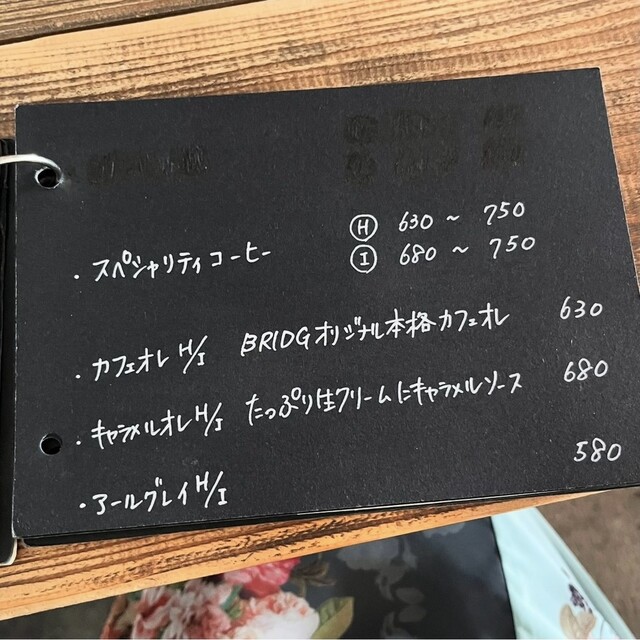 Ⓗ 630 ~ 750
・スペシャリティコーヒー Ⓘ 680 ~ 750
・カフェオレ H/I BRIDGオリジナル本格カフェオレ 630
・キャラメルオレ H/I たっぷり生クリームにキャラメルソース 680
・アールグレイ H/I 580